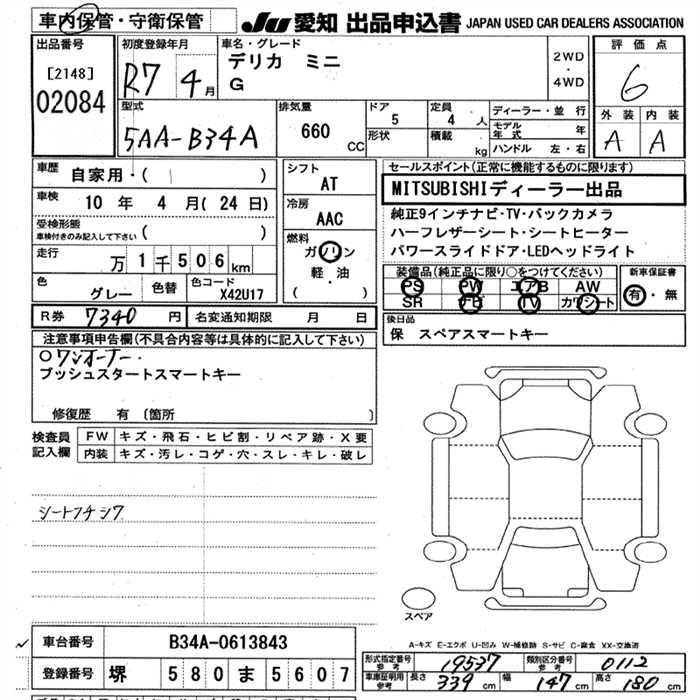 車内保管・守衛保管 JU 愛知 出品申込書 JAPAN USED CAR DEALERS ASSOCIATION
出品番号 [2148] 02084
初度登録年月 R7年4月
車名・グレード デリカ ミニ G
2WD・4WD
評価点 6
外装 内装
A A
型式 5AA-B34A
排気量 660 CC
ドア 5 定員 4人
形状 積載 kg
ディーラー・並行
モデル年式 年
ハンドル 左・右
車歴 自家用・( )
車検 10年4月(24日)
受検形態
車検付きのみ記入して下さい ( )
走行 万1千506km
色 グレー 色替 色コード X42U17
シフト AT
冷房 AAC
燃料 ガソリン
軽・油
( )
セールスポイント(正常に機能するものに限ります)
MITSUBISHIディーラー出品
純正9インチナビ・TV・バックカメラ
ハーフレザーシート・シートヒーター
パワースライドドア・LEDヘッドライト
装備品(純正品に限り○をつけてください) 新車保証書
PS PW エアB AW 有・無
SR ナビ TV カワシート
R券 7340円 名変通知期限 月 日
後日品
保 スペアスマートキー
注意事項申告欄(不具合内容等は具体的に記入して下さい)
○ワンオーナー・
プッシュスタートスマートキー
修復歴 有〔箇所 〕
検査員記入欄
FW キズ・飛石・ヒビ割・リペア跡・X要
内装 キズ・汚レ・コゲ・穴・スレ・キレ・破レ
シートフチシワ
スペア
A-キズ E-エクボ U-凹み W-補修跡 S-サビ C-腐食 XX-交換済
車台番号 B34A-0613843
登録番号 堺 580 ま 5607
形式指定番号 参考 19537 類別区分番号 参考 0112
車庫証明用 参考 長さ 339 cm 幅 147 cm 高さ 180 cm